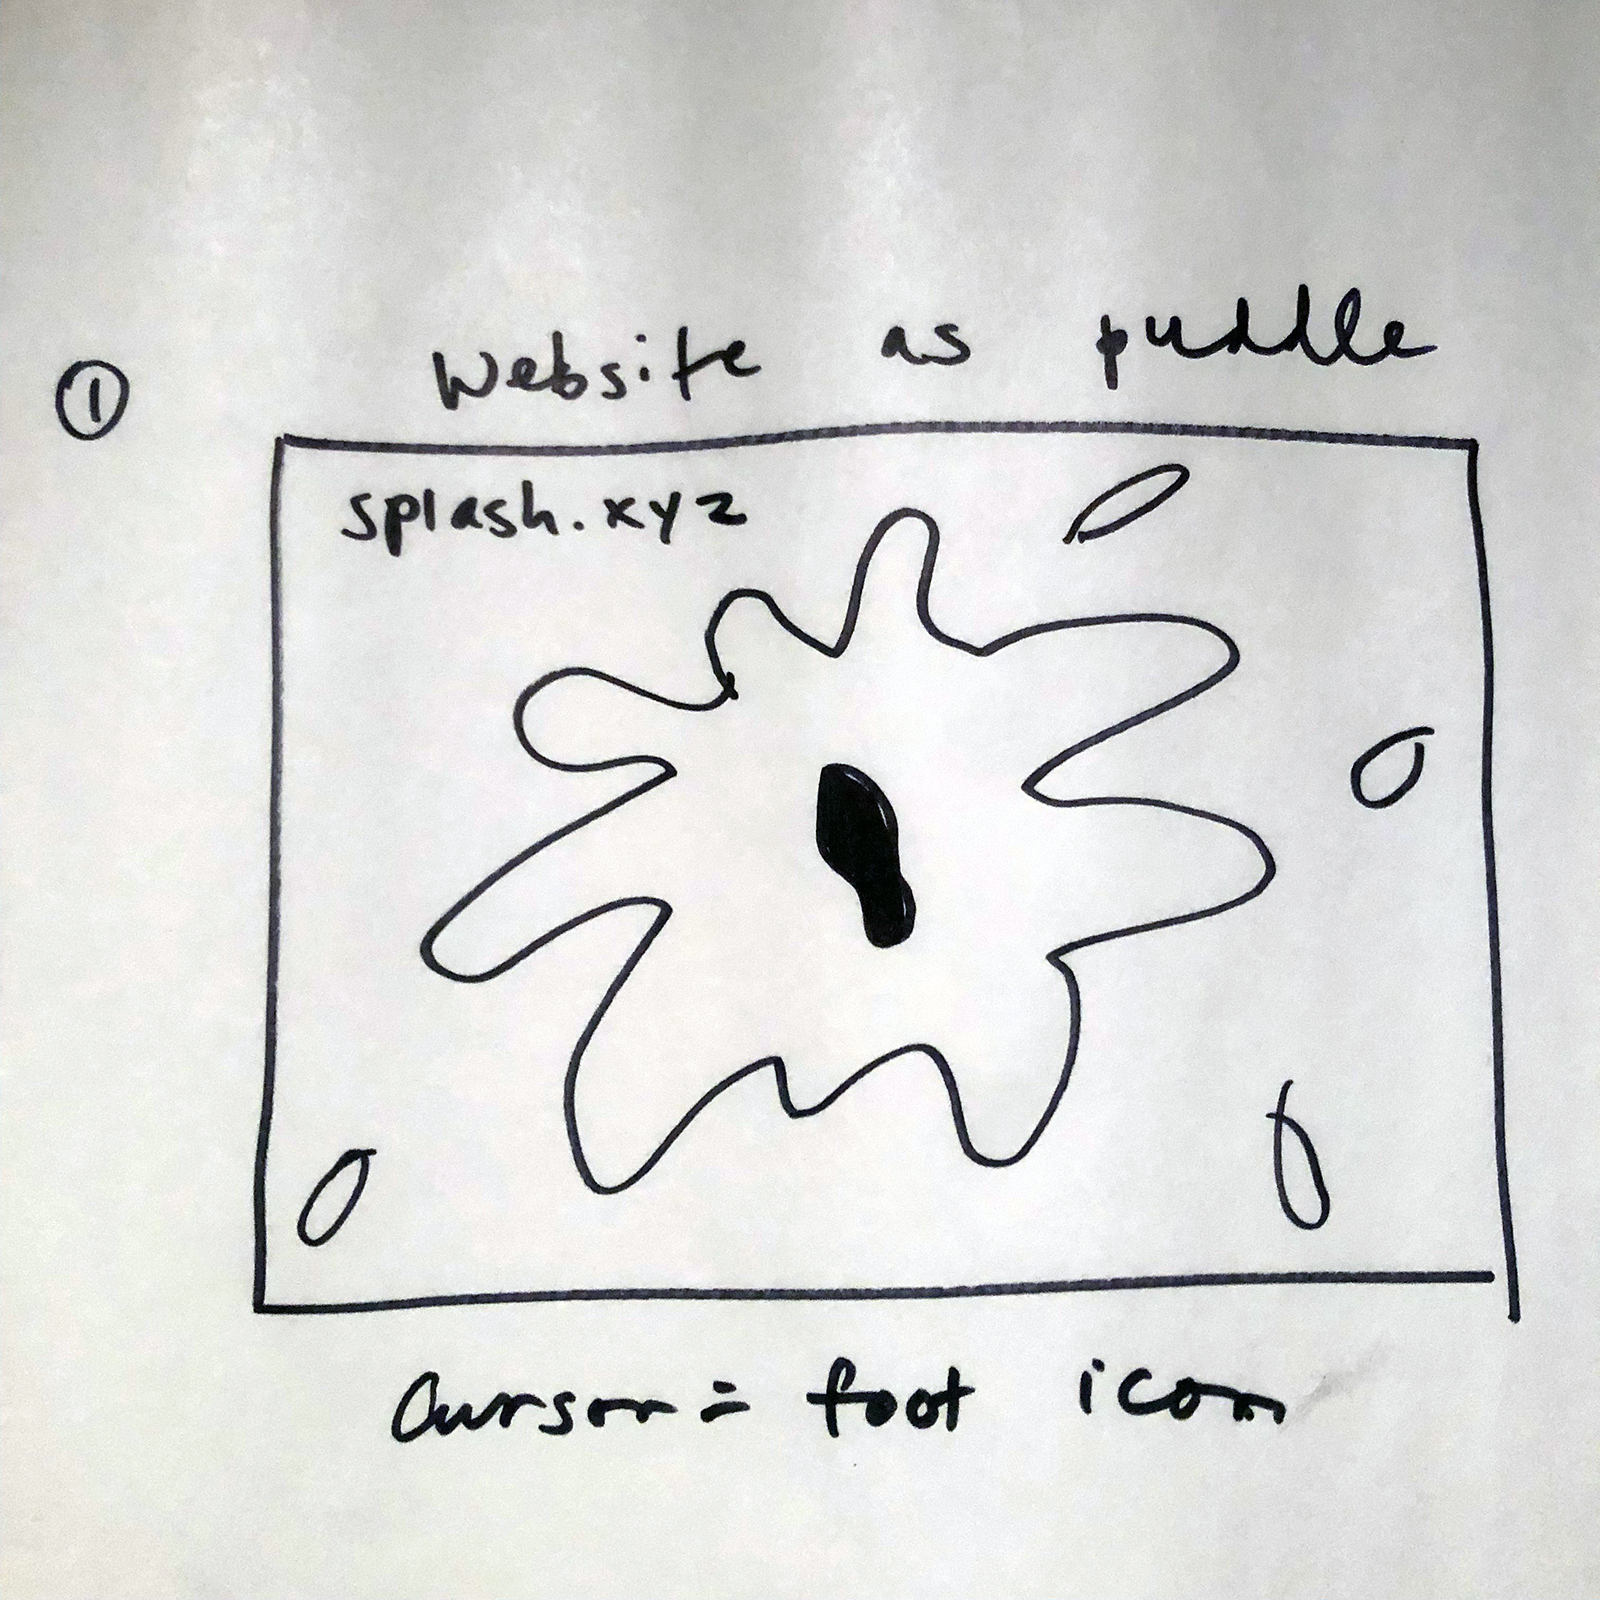 ① Website as puddle
splash.xyz
Cursor = foot icon